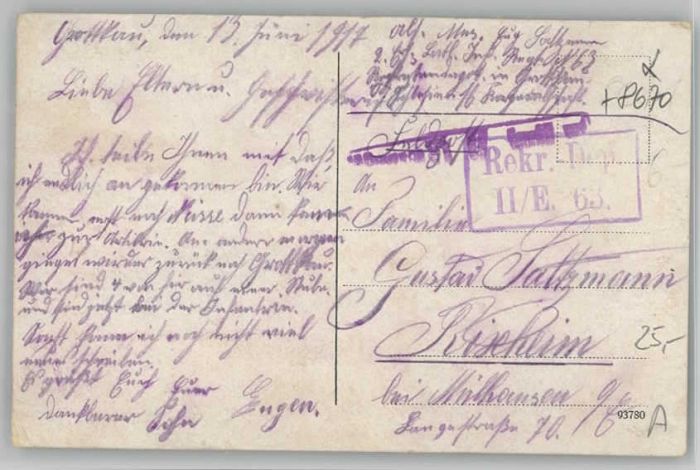 Grottkau, den 13. Juni 1917
Liebe Eltern u. Geschwister
Ich teile Ihnen mit daß
ich endlich an gekommen bin. Wir
kamen erst nach Neisse dann kamen
zur Artillerie. Am andern morgen
ging es wieder zurück nach Grottkau.
Wir sind 4 von hier auf einer Stube
und sind jetzt bei der Infanterie.
Sonst kann ich noch nicht viel
neues schreiben
Es grüßet Euch Euer
dankbarer Sohn Eugen.
Abs. Mus. Eug Saltzmann
2. Ers. Batl. Inf. Regt. No 63
in Grottkau
Schlesien
+8670
Feldpost
Rekr. Dep.
II/E. 63.
An
Familie
Gustav Saltzmann
Rixheim
bei Mülhausen i/E
Langestraße 70.
25,-
93780
A